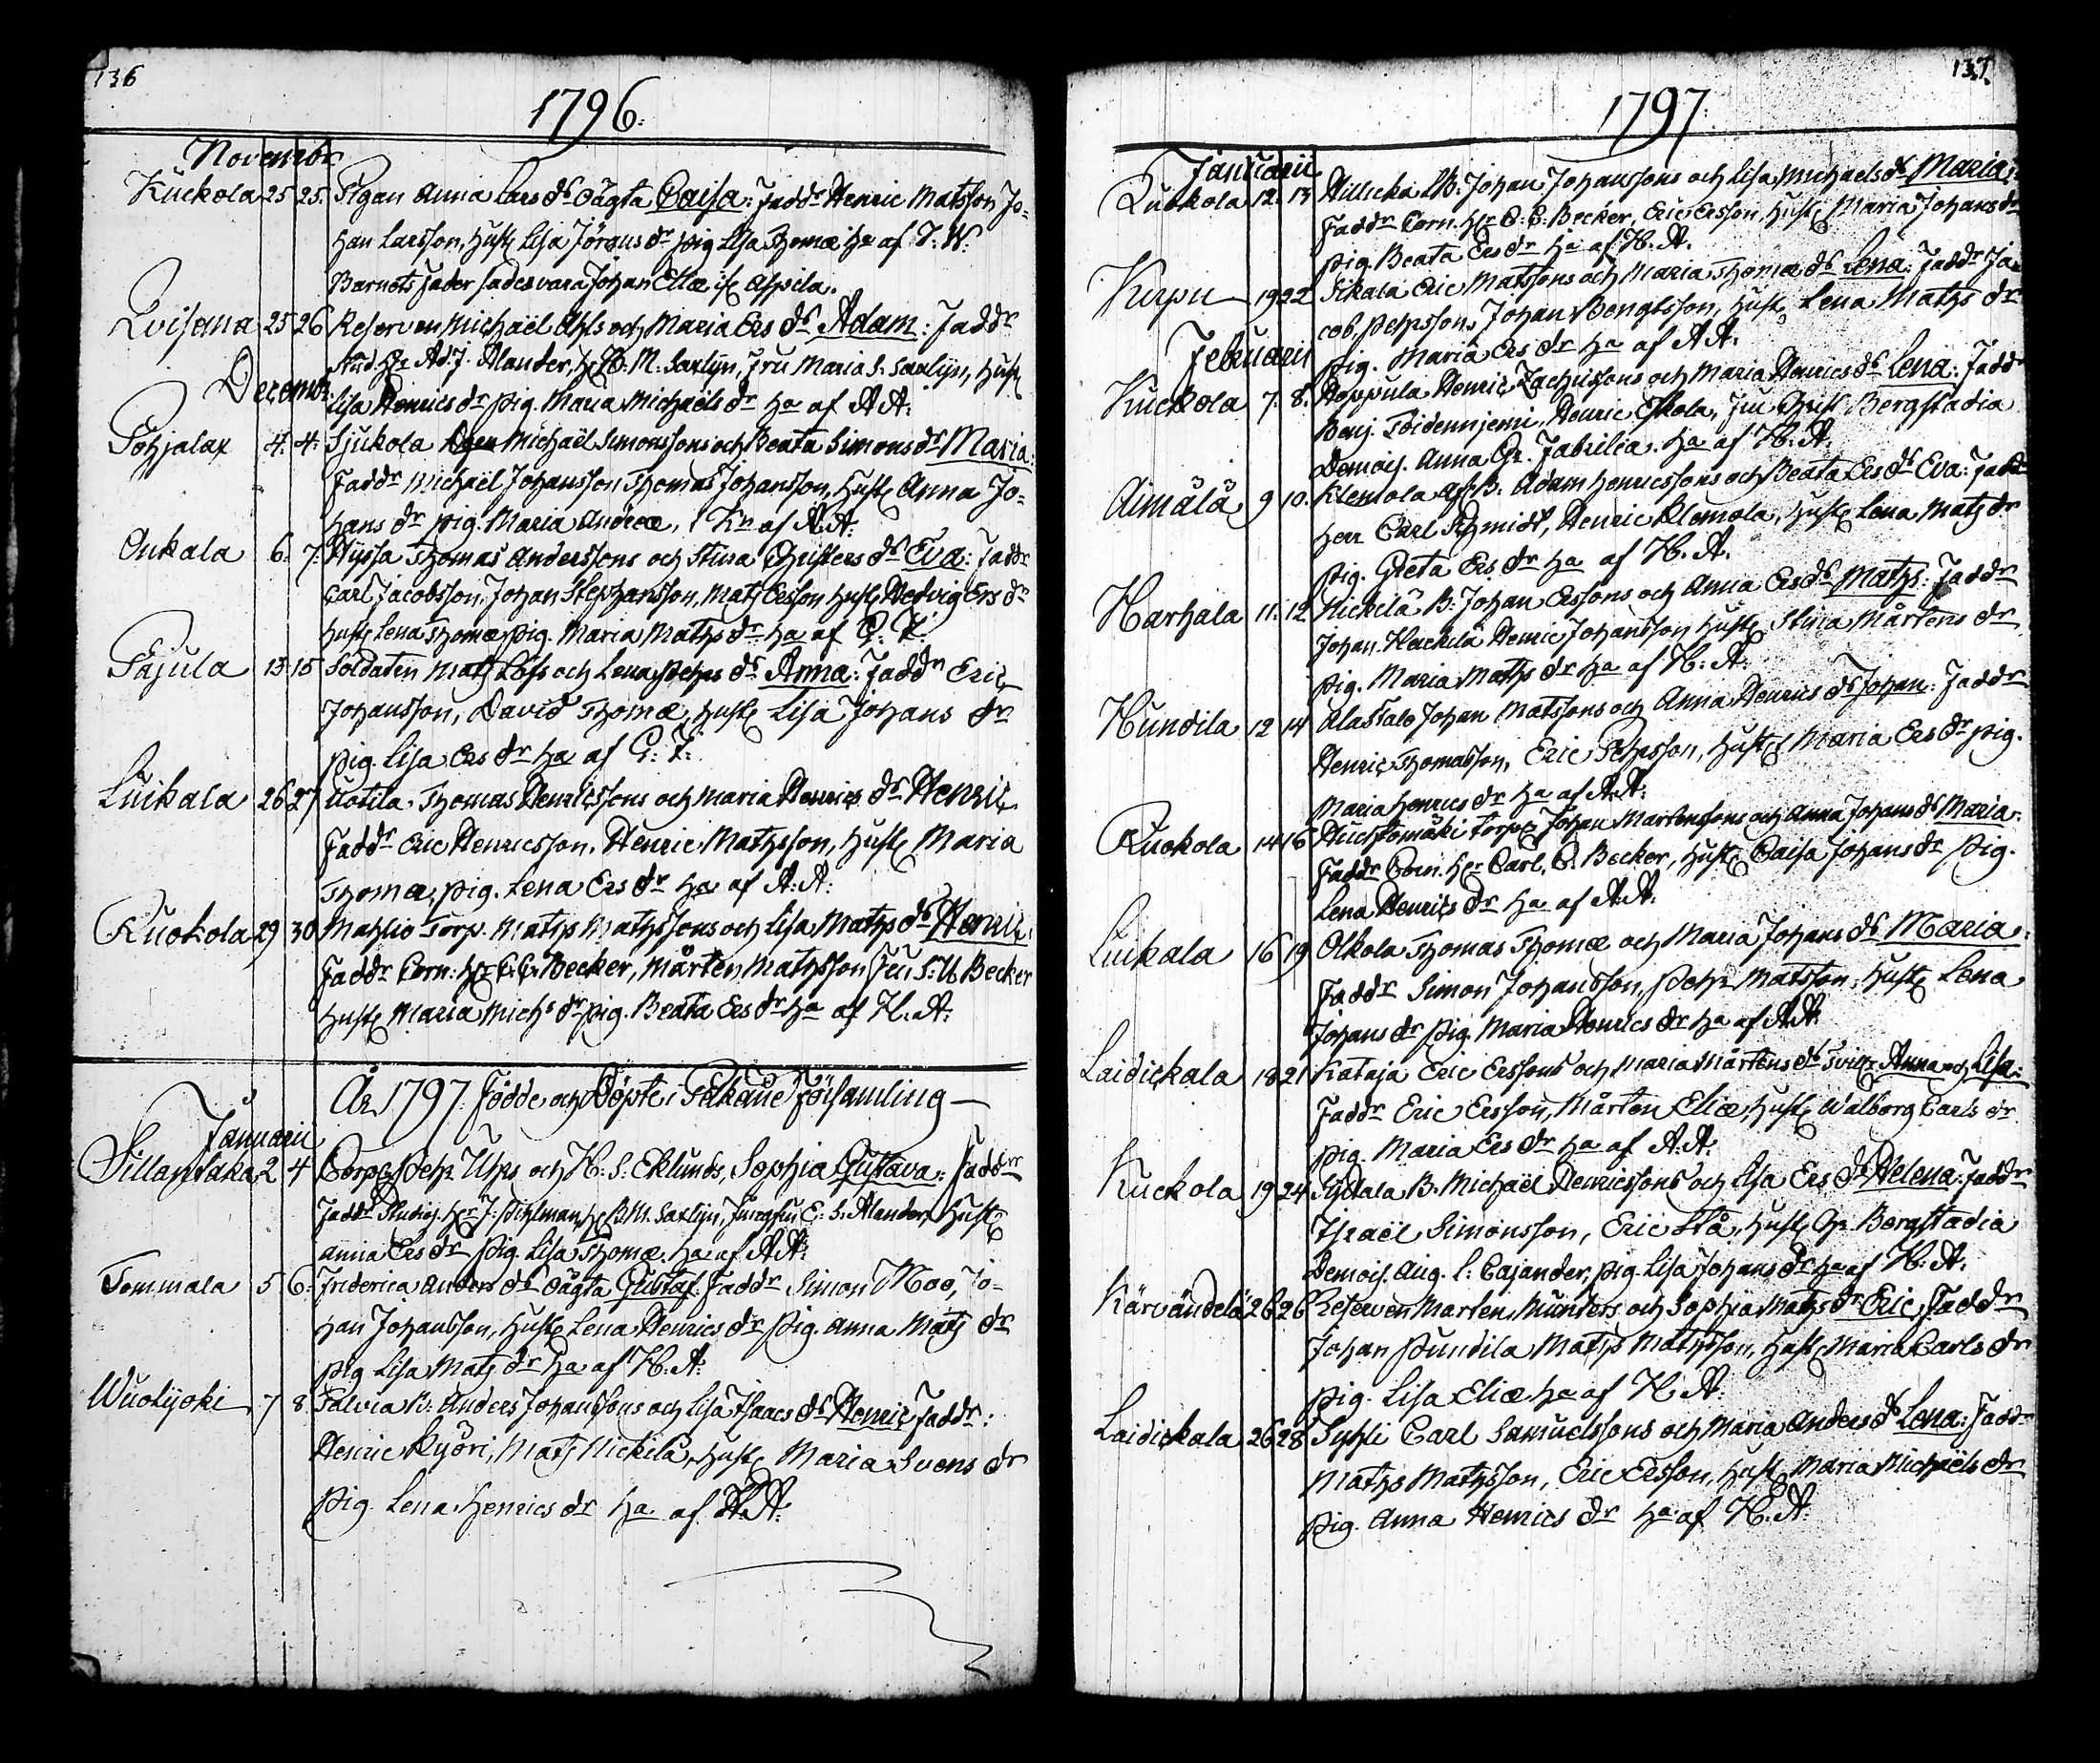 136
1796.
Novembr
Kuckola 25 25. Pigan Anna Lars ds oägta Caisa: Faddr Henric Matsson Jo-
han Larsson, Hust. Lisa Jörans dr pig Lisa Thomæ ha af J. W.
Barnets Fader sades vara Johan Eliæ
Qvisana 25 26 Reserven Michaël Ahls och Maria Ers ds Adam: Faddr
Stud. Hr Ad. J. Alander, Hr M. Saxlijn, Fru Maria S. Saxlijn, Hust
Decembr
Lisa Henrics dr pig. Maria Michaëls dr ha af A A:
Pohjalax 4. 4. Sjukola Michaël Simonssons och Beata Simons ds Maria:
Faddr Michaël Johansson Thomas Johansson, Hust Anna Jo-
hans dr pig. Maria Andreæ, af A. A:
Onkala 6. 7. Hyssa Thomas Anderssons och Stina Christers ds Eva: Faddr
Carl Jacobsson, Johan Stephansson, Mats Ersson Hust Hedvig Ers dr
Hust Lena Thomæ, pig. Maria Maths dr ha af G. F.
Pajula 13 15 Soldaten Mats Löfs och Lena Pehrs ds Anna: Faddr Eric
Johansson, David Thomæ, Hust Lisa Johans dr
pig. Lisa Ers dr ha af G: F:
Luikala 26 27 Uotila Thomas Henricssons och Maria Henrics ds Henric
Faddr Eric Henricsson, Henric Mathsson, Hust Maria
Thomæ, pig. Lena Ers dr ha af A: A:
Kuokola 29 30 Mahlio Torp. Maths Mathssons och Lisa Maths ds Henric
Faddr Corn: Hr C. C. Becker, Mårten Mathsson Fru S: U Becker
Hust Maria Michs dr pig. Beata Ers dr ha af H. A:
År 1797. Födde och Döpte i Pälkäne Församling
Januarii
Sillantaka 2 4 Corp. Pehr Uhrs och H: S: Eklunds, Sophia Gustava: Faddr
Faddr Studios. Hr J. Pihlman, Hr B. M. Saxlijn, Jungfru C: S. Alander, Hust
Anna Ers dr pig. Lisa Thomæ. ha af A A:
Tommala 5 6. Friderica Anders ds oägta Gustaf: Faddr Simon Moo, Jo-
han Johansson, Hust Lena Henrics dr pig. Anna Mats dr
pig Lisa Mats dr ha af H. A:
Wuolijoki 7 8 Palvia B: Anders Johanssons och Lisa Isaacs ds Henric Faddr:
Henric Kyöri, Mats Nickilä, Hust Maria Svens dr
pig. Lena Henrics dr ha af A. A:
137.
1797
Januarii
Kuokola 12. 13 B: Johan Johanssons och Lisa Michaels ds Maria:
Faddr Corn. Hr C: C: Becker, Eric Ersson, Hust Maria Johans dr
pig. Beata Ers dr ha af H. A.
Kirpu 19 22 Sikala Eric Matssons och Maria Thomæ ds Lena: Faddr Ja-
cob Pehrsson, Johan Bengtsson, Hust Lena Maths dr
Februarii
pig. Maria Ers dr ha af A A:
Kuckola 7. 8. Hoppula Henric Zachrissons och Maria Henrics ds Lena: Faddr
Benj. Henric Eskola, Fru Christ Bergstadia
Demois. Anna Chr. Fabrilia. ha af H. A:
Äimälä 9 10. Klemola B. Adam Henricssons och Beata Ers ds Eva: Faddr
Herr Carl Schmidt, Henric Klemola, Hust Lena Mats dr
pig. Greta Ers dr ha af H. A.
Harhala 11. 12 Nickilä B: Johan Erssons och Anna Ers ds Maths: Faddr
Johan Heickilä Henric Johansson Hust Stina Mårtens dr
pig. Maria Maths dr ha af H: A:
Hundila 12 14 Alastalo Johan Matssons och Anna Henrics ds Johan: Faddr
Henric Thomasson, Eric Pehrsson, Hust Maria Ers dr pig.
Maria Henrics dr ha af A. A:
Kuokola 14 16 Torp. Johan Mårtenssons och Anna Johans ds Maria:
Faddr Corn. Hr Carl. C. Becker, Hust Caisa Johans dr pig.
Lena Henrics dr ha af A A.
Luikala 16 19 Olkola Thomas Thomæ och Maria Johans ds Maria:
Faddr Simon Johansson, Pehr Matsson, Hust Lena
Johans dr pig. Maria Henrics dr ha af A A:
Laidickala 18 21 Kataja Eric Erssons och Maria Mårtens ds Tvill. Anna och Lisa:
Faddr Eric Ersson, Mårten Eliæ, Hust Walborg Carls dr
pig. Maria Ers dr ha af A: A:
Kuckola 19 24 B. Michaël Henricssons och Lisa Ers ds Helena: Faddr
Israël Simonsson, Eric Stå, Hust Chr. Bergstadia
Demois. Aug. l. Cajander, pig. Lisa Johans dr ha af H: A.
Kärvändelä 26 26 Reserven Mårten Munters och Sophia Maths dr Eric, Faddr
Johan Pundila Maths Mathsson, Hust Maria Carls dr
pig. Lisa Eliæ ha af H A:
Laidickala 26 28 Syhli Carl Samuelssons och Maria Anders ds Lena: Faddr
Maths Mathsson, Eric Ersson, Hust Maria Michaëls dr
pig. Anna Henrics dr ha af H. A: